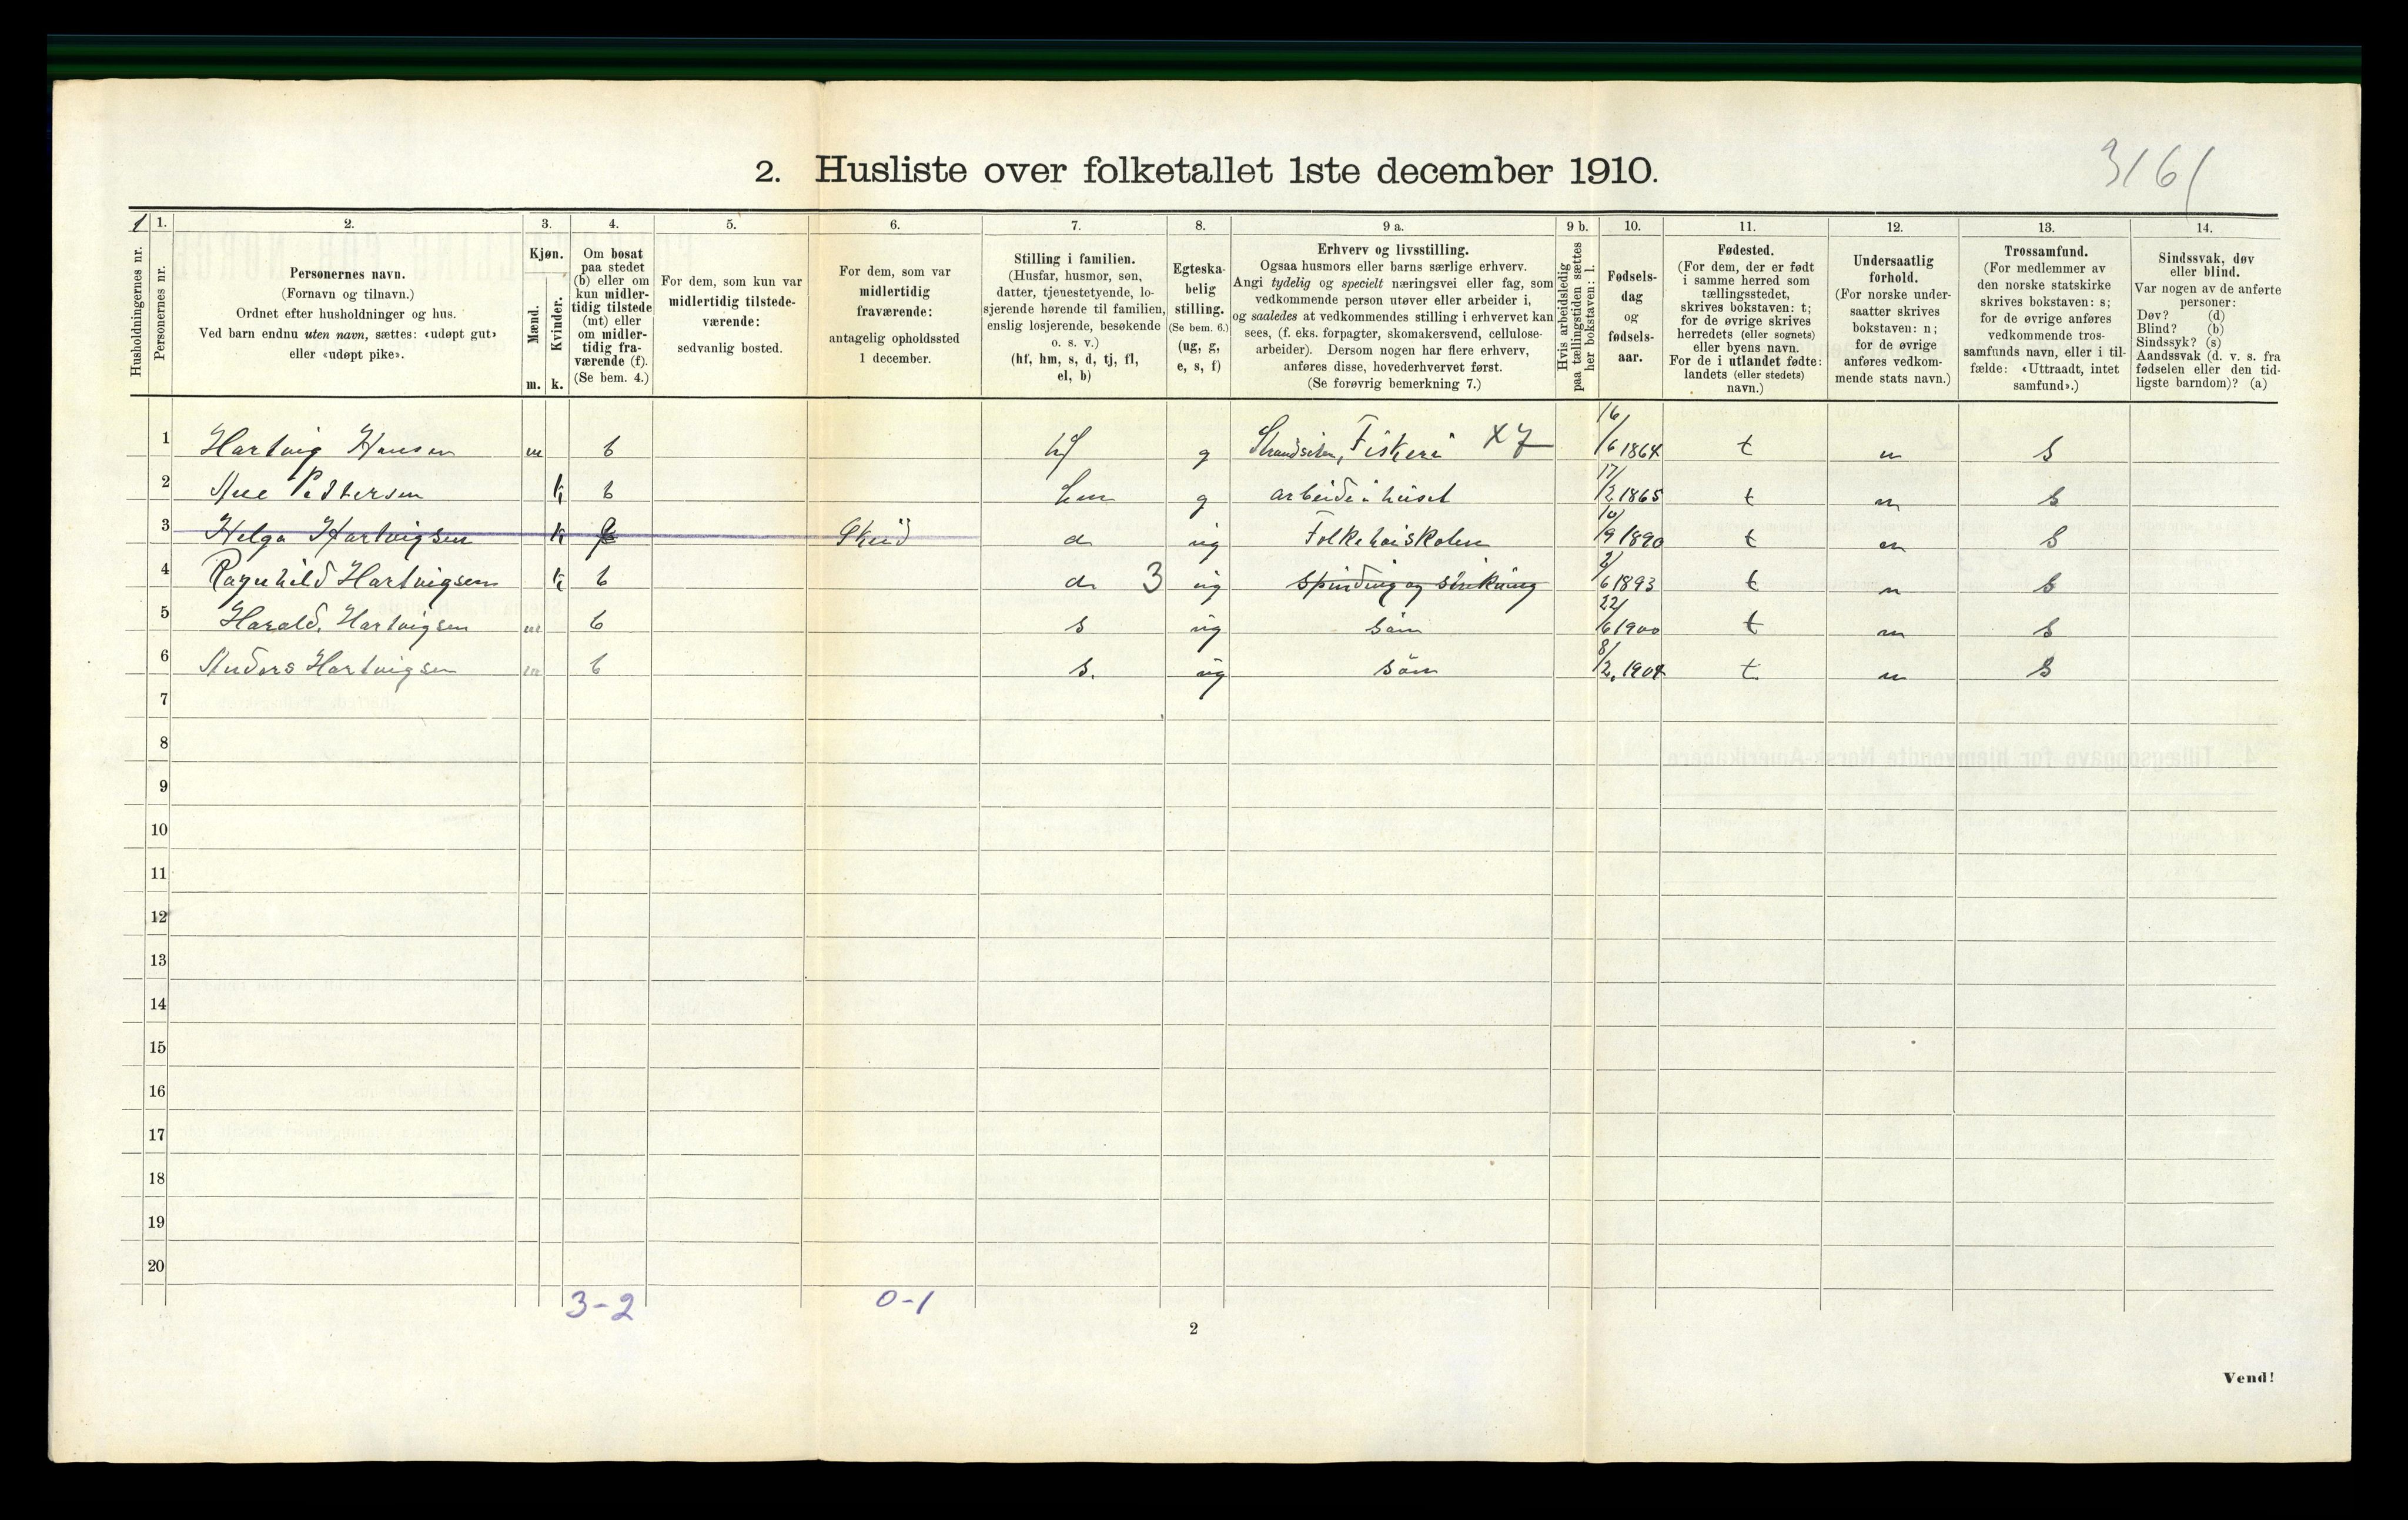 3161
2. Husliste over folketallet 1ste december 1910.
1
Husholdningernes nr.
1.
Personernes nr.
2.
Personernes navn.
(Fornavn og tilnavn.)
Ordnet efter husholdninger og hus.
Ved barn endnu uten navn, sættes: «udøpt gut»
eller «udøpt pike».
3.
Kjøn.
Mænd.
Kvinder.
m. k.
4.
Om bosat
paa stedet
(b) eller om
kun midler-
tidig tilstede
(mt) eller
om midler-
tidig fra-
værende (f).
(Se bem. 4.)
5.
For dem, som kun var
midlertidig tilstede-
værende:
sedvanlig bosted.
6.
For dem, som var
midlertidig
fraværende:
antagelig opholdssted
1 december.
7.
Stilling i familien.
(Husfar, husmor, søn,
datter, tjenestetyende, lo-
sjerende hørende til familien,
enslig losjerende, besøkende
o. s. v.)
(hf, hm, s, d, tj, fl,
el, b)
8.
Egteska-
belig
stilling.
(Se bem. 6.)
(ug, g,
e, s, f)
9 a.
Erhverv og livsstilling.
Ogsaa husmors eller barns særlige erhverv.
Angi tydelig og specielt næringsvei eller fag, som
vedkommende person utøver eller arbeider i,
og saaledes at vedkommendes stilling i erhvervet kan
sees, (f. eks. forpagter, skomakersvend, cellulose-
arbeider). Dersom nogen har flere erhverv,
anføres disse, hovederhvervet først.
(Se forøvrig bemerkning 7.)
9 b.
Hvis arbeidsledig
paa tællingstiden sættes
her bokstaven: l.
10.
Fødsels-
dag
og
fødsels-
aar.
11.
Fødested.
(For dem, der er født
i samme herred som
tællingsstedet,
skrives bokstaven: t;
for de øvrige skrives
herredets (eller sognets)
eller byens navn.
For de i utlandet fødte:
landets (eller stedets)
navn.)
12.
Undersaatlig
forhold.
(For norske under-
saatter skrives
bokstaven: n;
for de øvrige
anføres vedkom-
mende stats navn.)
13.
Trossamfund.
(For medlemmer av
den norske statskirke
skrives bokstaven: s;
for de øvrige anføres
vedkommende tros-
samfunds navn, eller i til-
fælde: «Uttraadt, intet
samfund».)
14.
Sindssvak, døv
eller blind.
Var nogen av de anførte
personer:
Døv? (d)
Blind? (b)
Sindssyk? (s)
Aandssvak (d. v. s. fra
fødselen eller den tid-
ligste barndom)? (a)
1 Hartvig Hansen m b hf g Strandsitter, Fiskeri X 7 16/6 1864 t n s
2 Ane Pettersen k b hm g arbeide i huset 17/2 1865 t n s
3 Helga Hartvigsen k f d ug Folkehøiskolen 10/9 1890 t n s
4 Ragnhild Hartvigsen k b d 3 ug spinding og strikning 2/6 1893 t n s
5 Harald Hartvigsen m b s ug søn 22/6 1900 t n s
6 Anders Hartvigsen m b s. ug søn 8/2 1904 t n s
7
8
9
10
11
12
13
14
15
16
17
18
19
20
3-2 0-1
2
Vend!